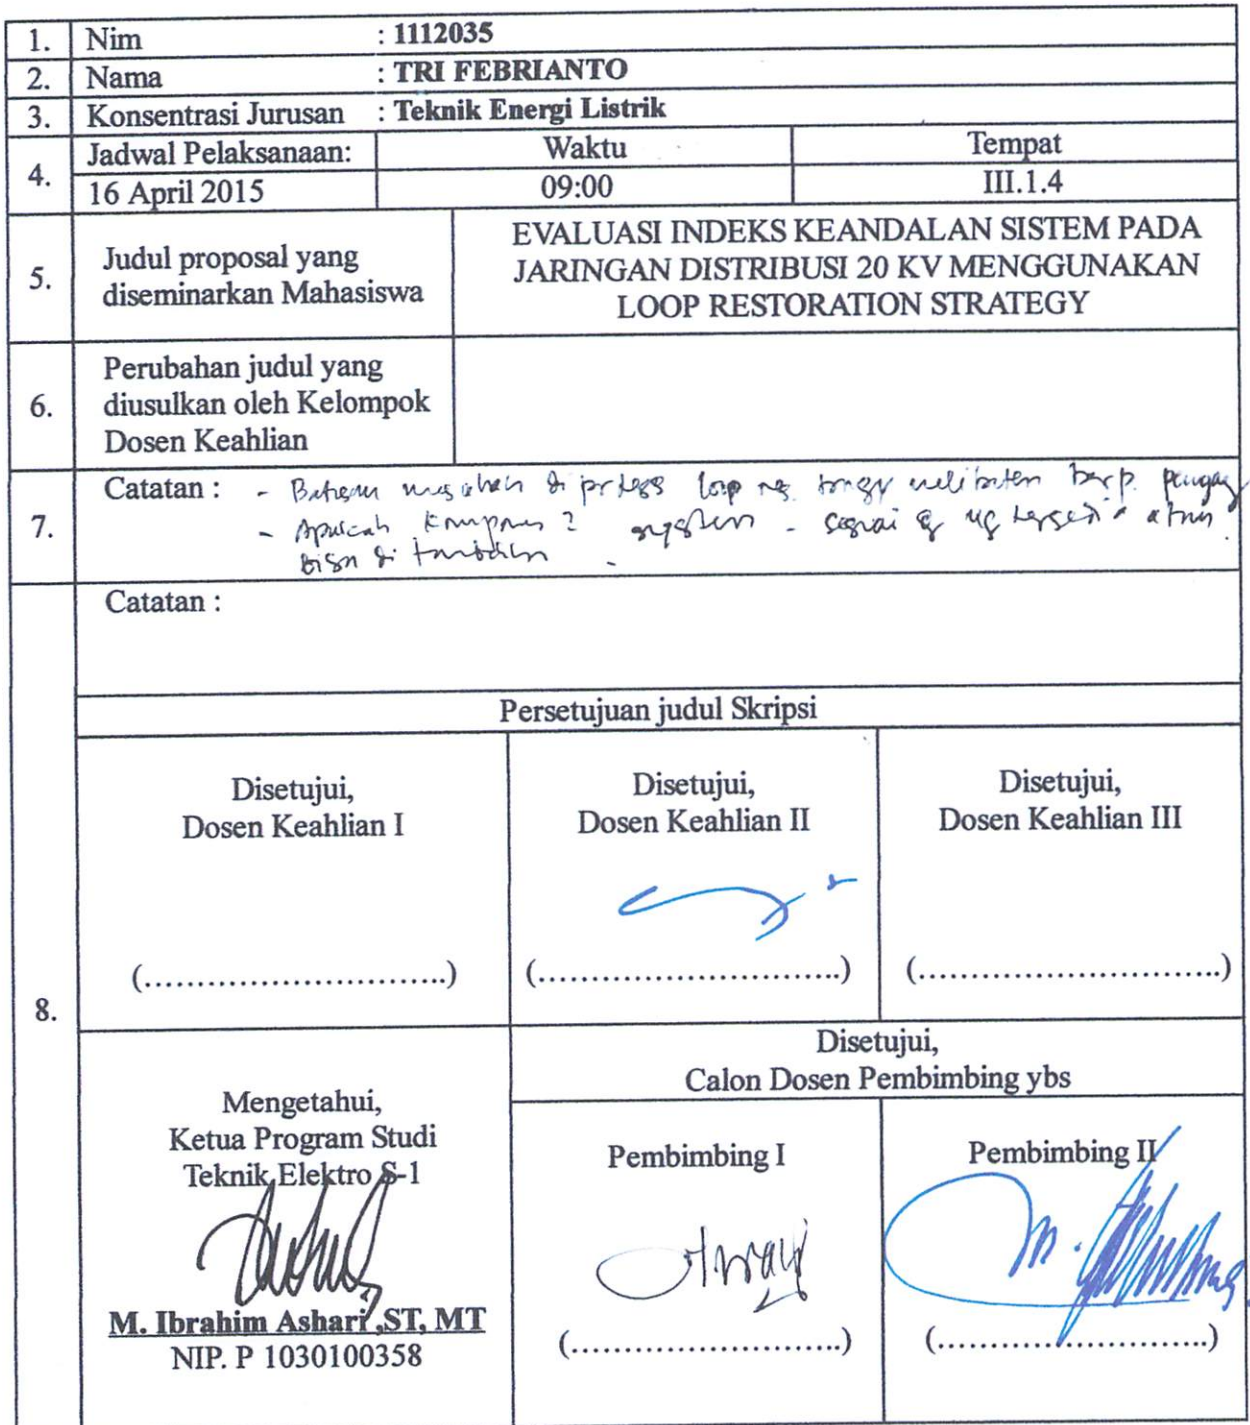 1. Nim : 1112035
2. Nama : TRI FEBRIANTO
3. Konsentrasi Jurusan : Teknik Energi Listrik
4. Jadwal Pelaksanaan: Waktu Tempat
16 April 2015 09:00 III.1.4
5. Judul proposal yang diseminarkan Mahasiswa
EVALUASI INDEKS KEANDALAN SISTEM PADA
JARINGAN DISTRIBUSI 20 KV MENGGUNAKAN
LOOP RESTORATION STRATEGY
6. Perubahan judul yang
diusulkan oleh Kelompok
Dosen Keahlian
7. Catatan : - Batasan masalah di loop
- Apakah
bisa di
8. Catatan :
Persetujuan judul Skripsi
Disetujui,
Dosen Keahlian I
(............................)
Disetujui,
Dosen Keahlian II
(............................)
Disetujui,
Dosen Keahlian III
(............................)
Mengetahui,
Ketua Program Studi
Teknik Elektro S-1
M. Ibrahim Ashari ,ST, MT
NIP. P 1030100358
Disetujui,
Calon Dosen Pembimbing ybs
Pembimbing I
(..........................)
Pembimbing II
(..........................)